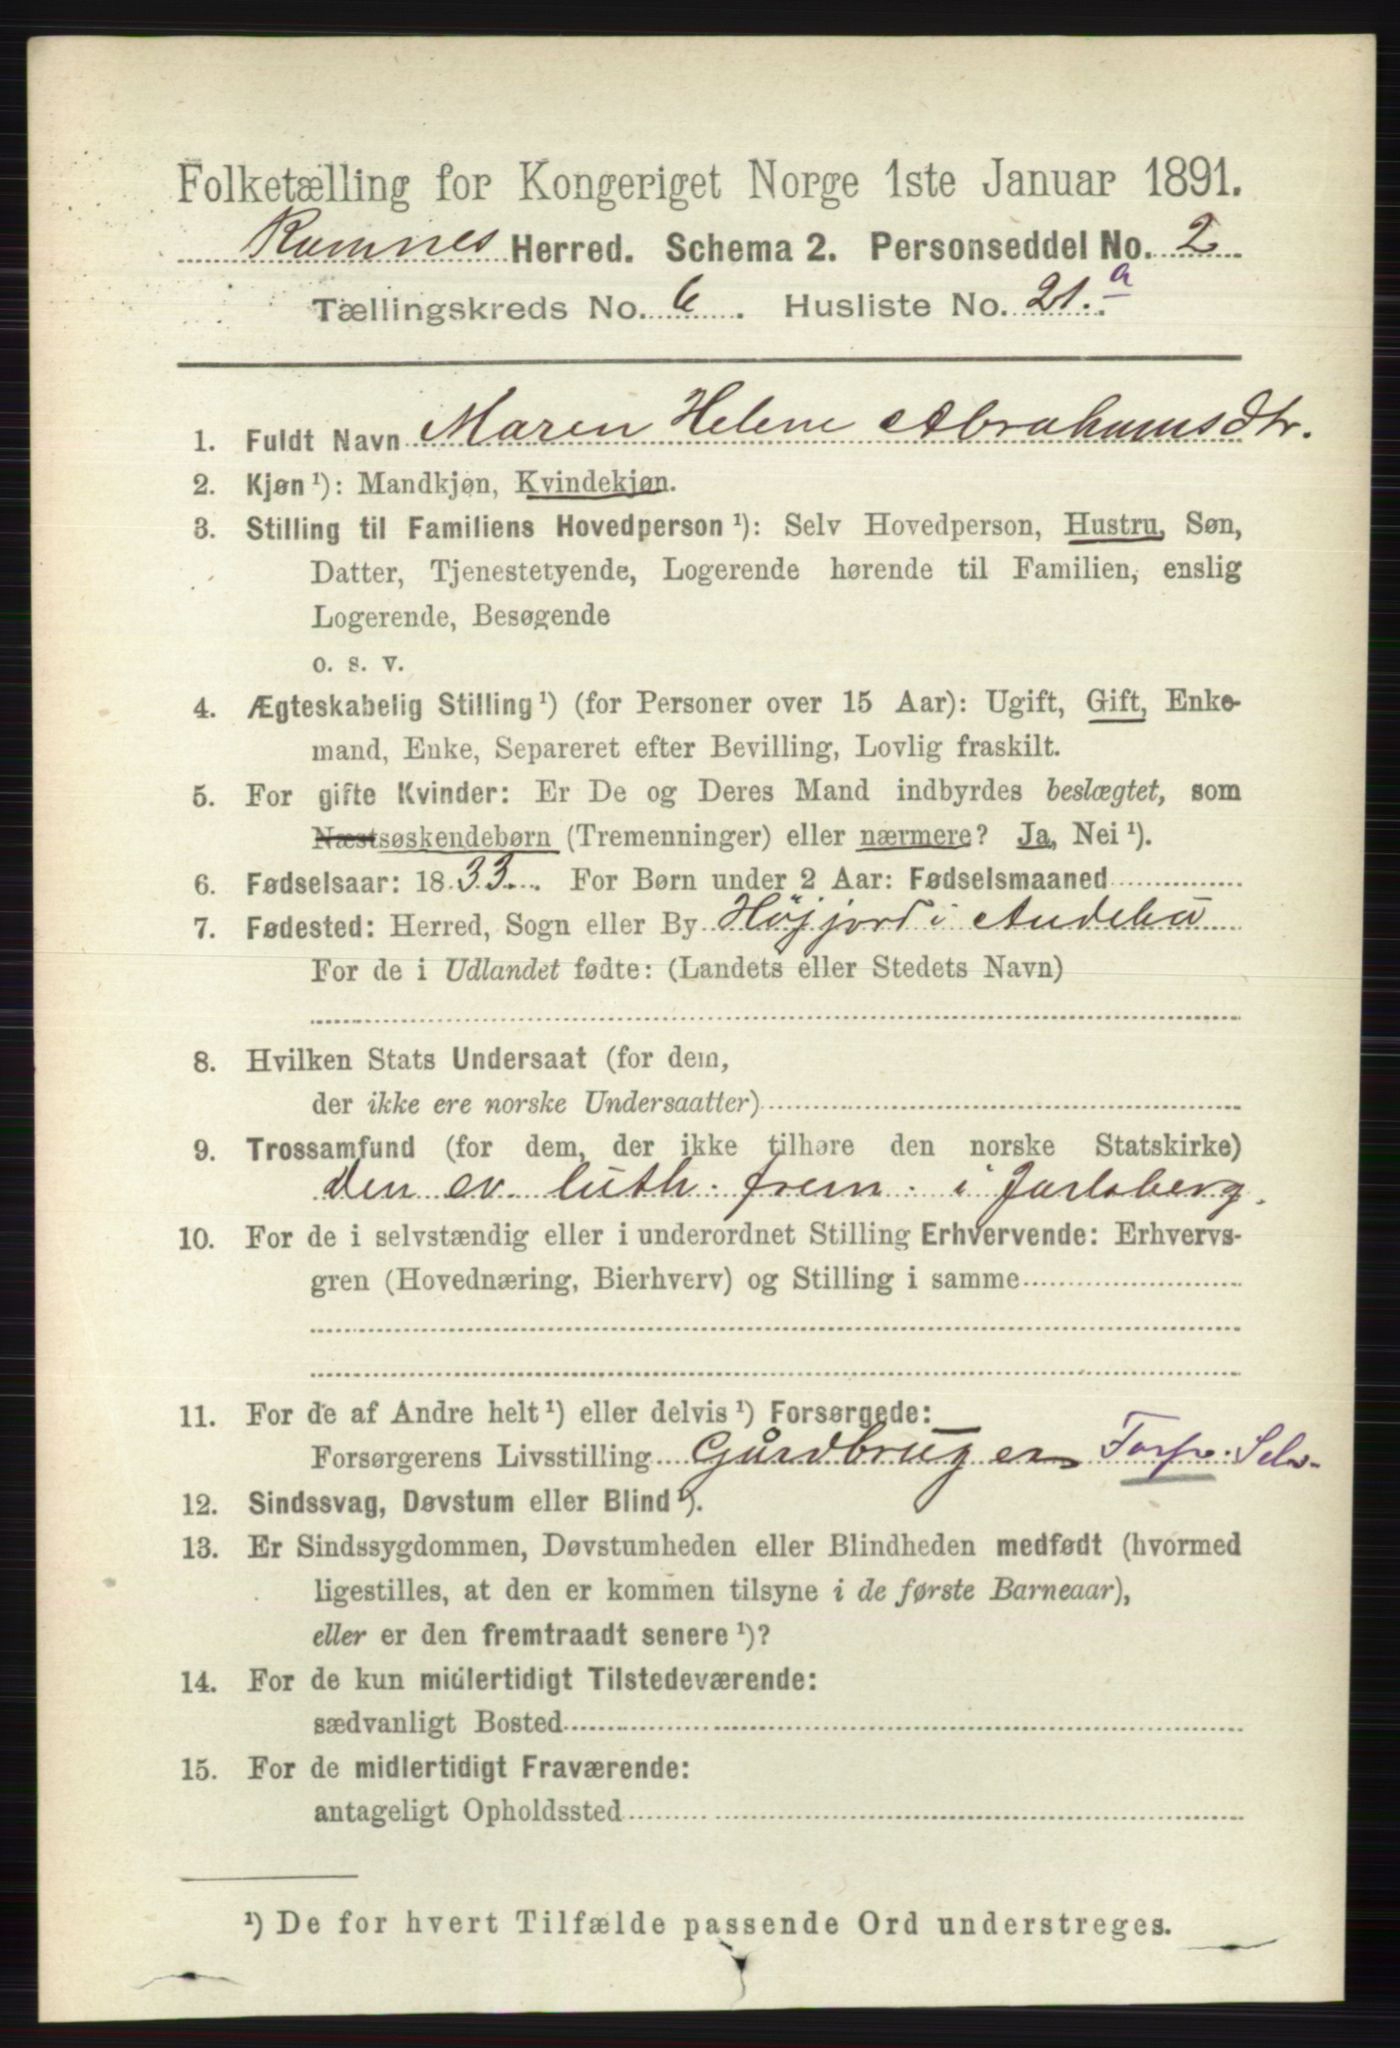 Folketælling for Kongeriget Norge 1ste Januar 1891.
Ramnes Herred. Schema 2. Personseddel No. 2
Tællingskreds No. 6. Husliste No. 21.a
1. Fuldt Navn Maren Helene Abrahamsdtr.
2. Kjøn ¹): Mandkjøn, Kvindekjøn.
3. Stilling til Familiens Hovedperson ¹): Selv Hovedperson, Hustru, Søn,
Datter, Tjenestetyende, Logerende hørende til Familien, enslig
Logerende, Besøgende
o. s. v.
4. Ægteskabelig Stilling ¹) (for Personer over 15 Aar): Ugift, Gift, Enke-
mand, Enke, Separeret efter Bevilling, Lovlig fraskilt.
5. For gifte Kvinder: Er De og Deres Mand indbyrdes beslægtet, som
Næstsøskendebørn (Tremenninger) eller nærmere? Ja, Nei ¹).
6. Fødselsaar: 1833. For Børn under 2 Aar: Fødselsmaaned
7. Fødested: Herred, Sogn eller By Højjord i Andebu
For de i Udlandet fødte: (Landets eller Stedets Navn)
8. Hvilken Stats Undersaat (for dem,
der ikke ere norske Undersaatter)
9. Trossamfund (for dem, der ikke tilhøre den norske Statskirke)
den ev. luth. frem. i Jarlsberg.
10. For de i selvstændig eller i underordnet Stilling Erhvervende: Erhvervs-
gren (Hovednæring, Bierhverv) og Stilling i samme
11. For de af Andre helt ¹) eller delvis ¹) Forsørgede:
Forsørgerens Livsstilling Gårdbruger Forp. Selv-
12. Sindssvag, Døvstum eller Blind ¹).
13. Er Sindssygdommen, Døvstumheden eller Blindheden medfødt (hvormed
ligestilles, at den er kommen tilsyne i de første Barneaar),
eller er den fremtraadt senere ¹)?
14. For de kun midlertidigt Tilstedeværende:
sædvanligt Bosted
15. For de midlertidigt Fraværende:
antageligt Opholdssted
¹) De for hvert Tilfælde passende Ord understreges.